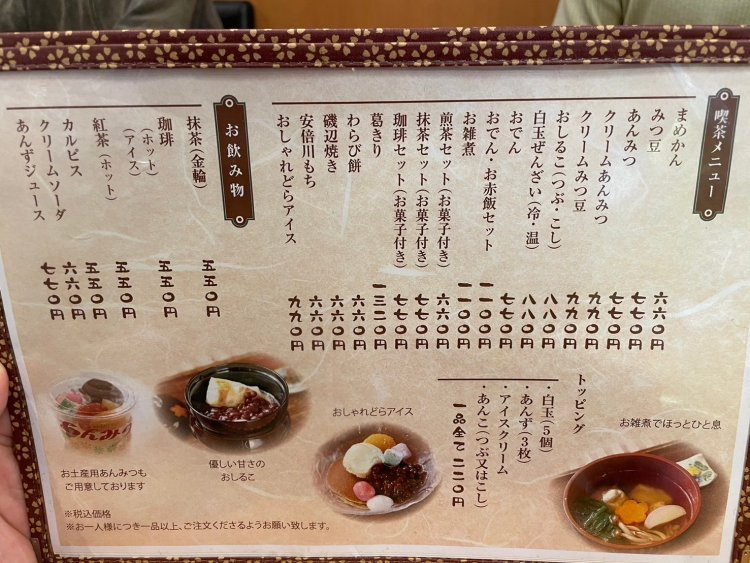 喫茶メニュー
まめかん 六六〇円
みつ豆 七七〇円
あんみつ 七七〇円
クリームあんみつ 九九〇円
クリームみつ豆 九九〇円
おしるこ(つぶ・こし) 八八〇円
白玉ぜんざい(冷・温) 八八〇円
おでん 七七〇円
おでん・お赤飯セット 一一〇〇円
お雑煮 一一〇〇円
煎茶セット(お菓子付き) 六六〇円
抹茶セット(お菓子付き) 七七〇円
珈琲セット(お菓子付き) 七七〇円
葛きり 一三二〇円
わらび餅 六六〇円
磯辺焼き 六六〇円
安倍川もち 六六〇円
おしゃれどらアイス 九九〇円
トッピング
・白玉(5個)
・あんず(3枚)
・アイスクリーム
・あんこ(つぶ又はこし)
一品全て二二〇円
お飲み物
抹茶(金輪) 五五〇円
珈琲
(ホット) 五五〇円
(アイス) 五五〇円
紅茶(ホット) 五五〇円
カルピス 六六〇円
クリームソーダ 七七〇円
あんずジュース
お雑煮でほっとひと息
おしゃれどらアイス
優しい甘さの
おしるこ
あんみつ
お土産用あんみつも
ご用意しております
※税込価格
※お一人様につき一品以上、ご注文くださるようお願い致します。